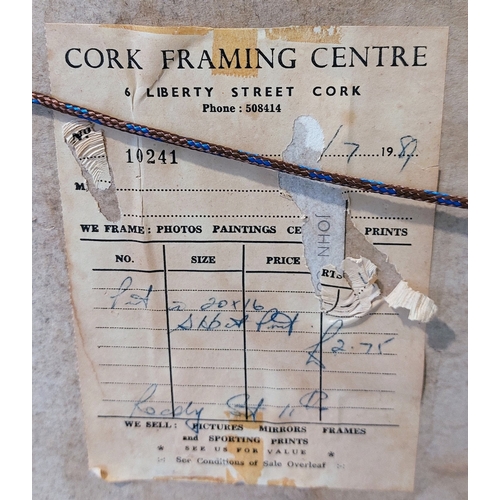 CORK FRAMING CENTRE
6 LIBERTY STREET CORK
Phone : 508414
No.
10241
/7 19 81
M
JOHN
WE FRAME: PHOTOS PAINTINGS CE PRINTS
NO. SIZE PRICE RTS
20x16
£2.75
Ready Sat 11th
WE SELL: PICTURES MIRRORS FRAMES
and SPORTING PRINTS
★ SEE US FOR VALUE ★
See Conditions of Sale Overleaf